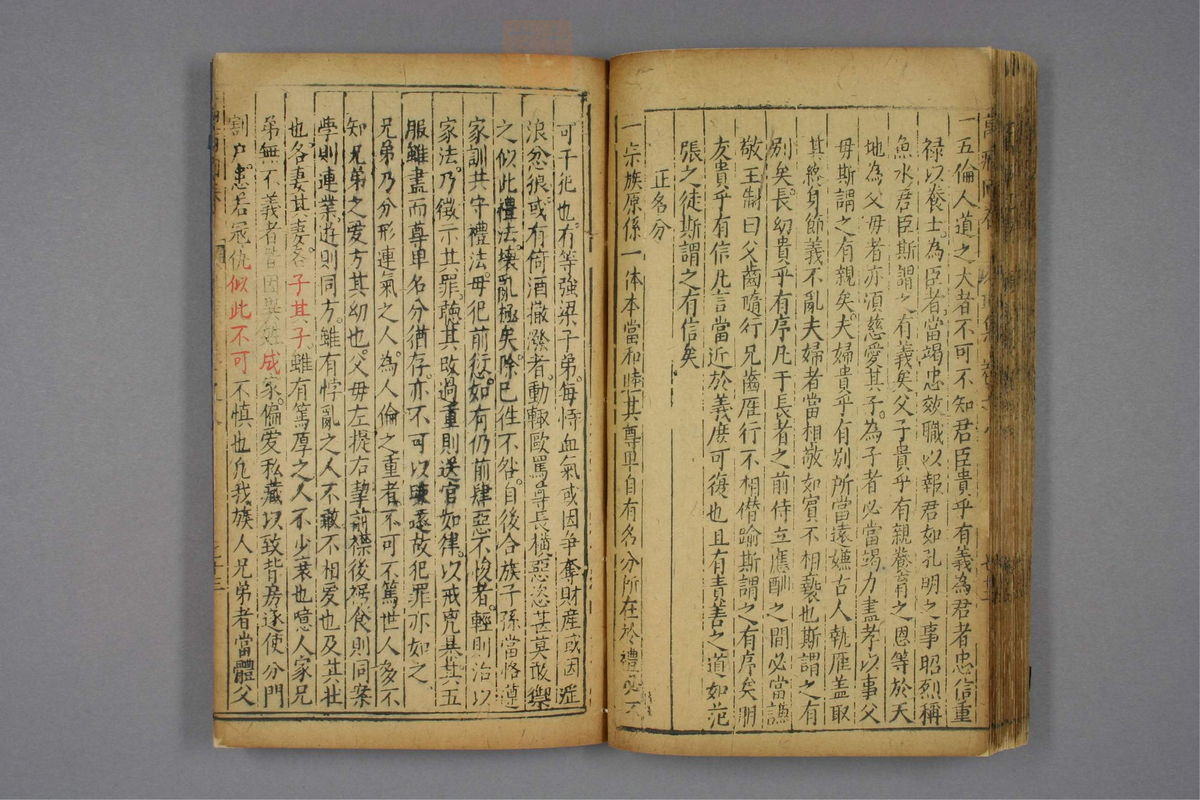 一五倫人道之大者不可不知君臣貴乎有義為君者忠信重
祿以養士為臣者當竭忠效職以報君如孔明之事昭烈稱
魚水君臣斯謂之有義矣父子貴乎有親養育之恩等於天
地為父母者亦須慈愛其子為子者必當竭力盡孝以事父
母斯謂之有親矣夫婦貴乎有別所當遠嫌古人執雁盖取
其終身節義不亂夫婦者當相敬如賓不相褻也斯謂之有
別矣長幼貴乎有序凡于長者之前侍立應酬之間必當謙
敬王制曰父齒隨行兄齒雁行不相僭踰斯謂之有序矣朋
友貴乎有信凡言當近於義庶可復也且有責善之道如范
張之徒斯謂之有信矣
正名分
一宗族原係一体本當和睦其尊卑自有名分所在於禮必不
可干犯也有等強梁子弟每恃血氣或因爭奪財産或因
浪忿狠或有倚酒撒潑者動輒歐罵尊長橫惡恣甚莫敢禦
之似此禮法壞亂極矣除已徃不咎自後合族子孫當恪遵
家訓共守禮法毋犯前愆如有仍前肆惡不悛者輕則治以
家法乃徵示其罪聽其改過重則送官如律以戒兇暴其五
服雖盡而尊卑名分猶存亦不可以疎遠故犯罪亦如之
兄弟乃分形連氣之人為人倫之重者不可不篤世人多不
知兄弟之愛方其幼也父母左提右挈前襟後裾食則同案
學則連業遊則同方雖有悖亂之人不敢不相愛也及其壯
也各妻其妻各子其子雖有篤厚之人不少衰也噫人家兄
弟無不義者皆因異姓成家偏愛私藏以致背房逐使分門
割户患若冦仇似此不可不慎也凡我族人兄弟者當體父